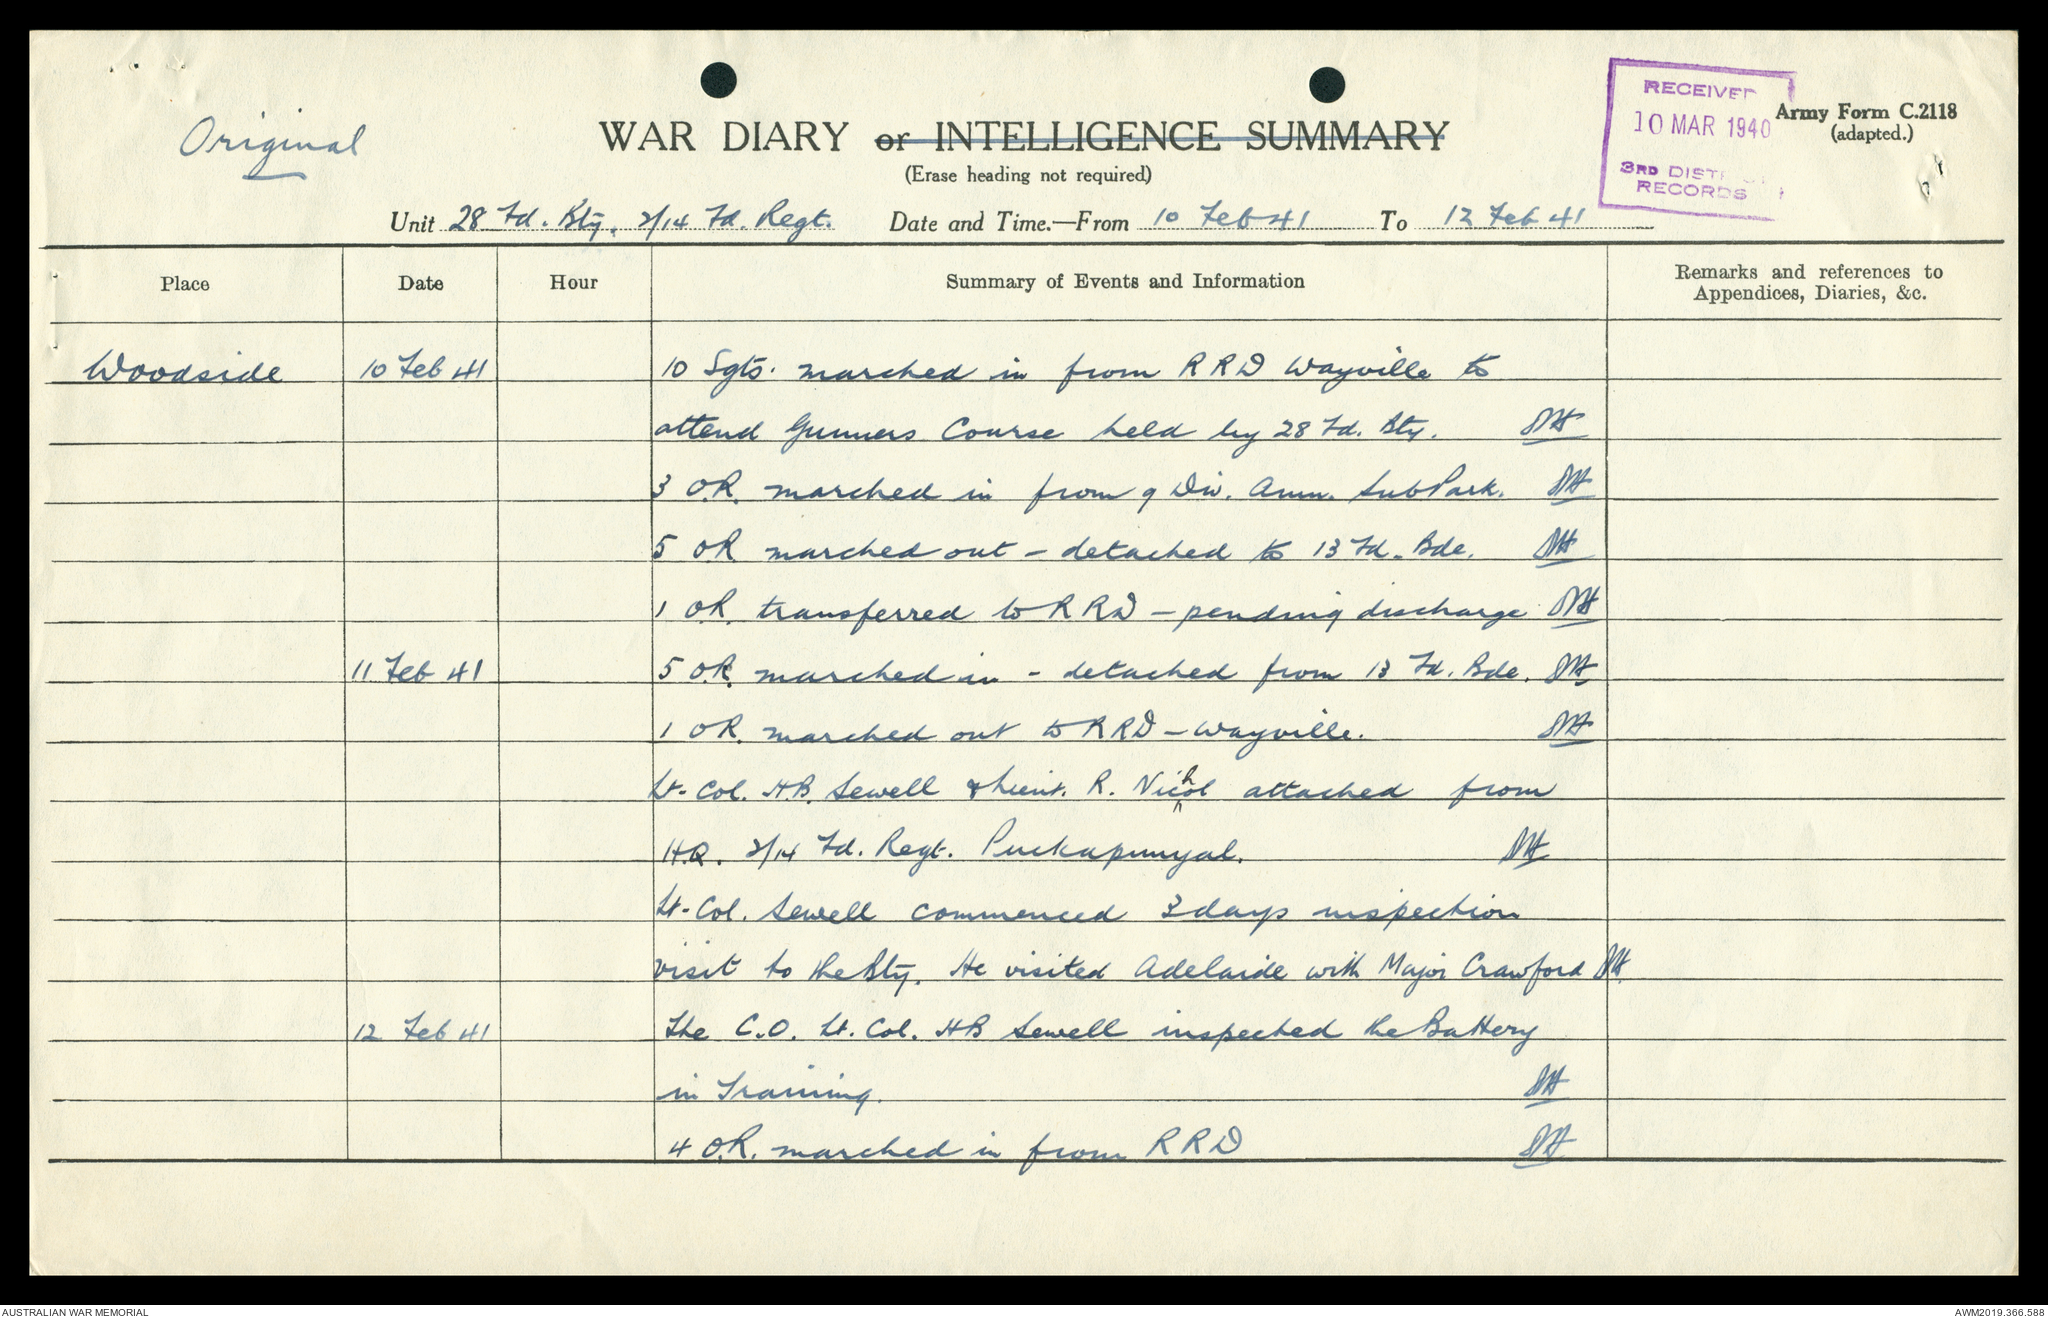 Original
WAR DIARY or INTELLIGENCE SUMMARY
(Erase heading not required)
RECEIVED
10 MAR 1940
3RD DIST
RECORDS
Army Form C.2118
(adapted.)
Unit 28 Fd. Bty. 2/14 Fd. Regt. Date and Time.—From 10 Feb 41 To 12 Feb 41
Place Date Hour Summary of Events and Information Remarks and references to
Appendices, Diaries, &c.
Woodside 10 Feb 41 10 Sgts. marched in from RRD Wayville to
attend Gunners Course held by 28 Fd. Bty.
3 O.R. marched in from 9 Div. Amm. Sub Park.
5 OR marched out - detached to 13 Fd. Bde.
1 O.R. transferred to RRD - pending discharge
11 Feb 41 5 O.R. marched in - detached from 13 Fd. Bde.
1 OR. marched out to RRD - Wayville.
Lt-Col. H.B. Sewell & Lieut. R. Nichol attached from
H.Q. 2/14 Fd. Regt. Puckapunyal.
Lt-Col. Sewell commenced 3 days inspection
visit to the Bty. He visited Adelaide with Major Crawford
12 Feb 41 The C.O. Lt. Col. HB Sewell inspected the Battery
in Training.
4 O.R. marched in from RRD
AUSTRALIAN WAR MEMORIAL AWM2019.366.588